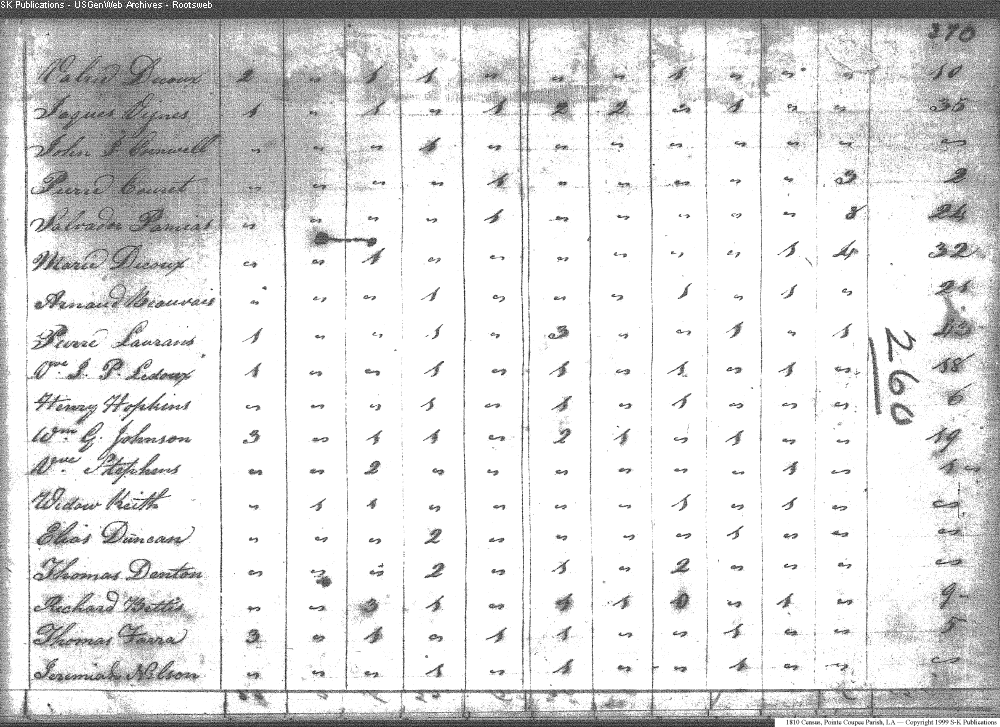 SK Publications - USGenWeb Archives - Rootsweb
270
Valerie Decoux 2 " 1 1 " " " 1 " " " 10
Jaques Vignes 1 " 1 " 1 2 2 " 1 " " 35
John J. Cornwell " " " 1 " " " " " " " "
Pierre " " " " 1 " " " " " 3 2
Salvador Pamias " " " " 1 " " " " " 8 24
Marie Decoux " " 1 " " " " " " 1 4 32
Arnaud Beauvais " " " 1 " " " 1 " 1 " 21
Pierre Laurans 1 " " 1 " 3 " " 1 " 1
Vve. L. P. Ledoux 1 " " 1 " 1 " 1 " 1 " 18
Henry Hopkins " " " 1 " 1 " 1 " " " 6
Wm G. Johnson 3 " 1 1 " 2 1 " 1 " " 19
Vve. Stephens " " 2 " " " " " " 1 " 1 "
Widow Keith " 1 1 " " " " 1 " 1 " "
Elias Duncan " " " 2 " " " " 1 " " "
Thomas Denton " " " 2 " 1 " 2 " " " "
Richard Bettis " " 3 1 " 1 1 " 1 " 9
Thomas Farra 3 " 1 " 1 1 " " 1 " " 5
Jeremiah Nelson " " " 1 " 1 " " 1 " " "
260
1810 Census, Pointe Coupee Parish, LA — Copyright 1999 S-K Publications